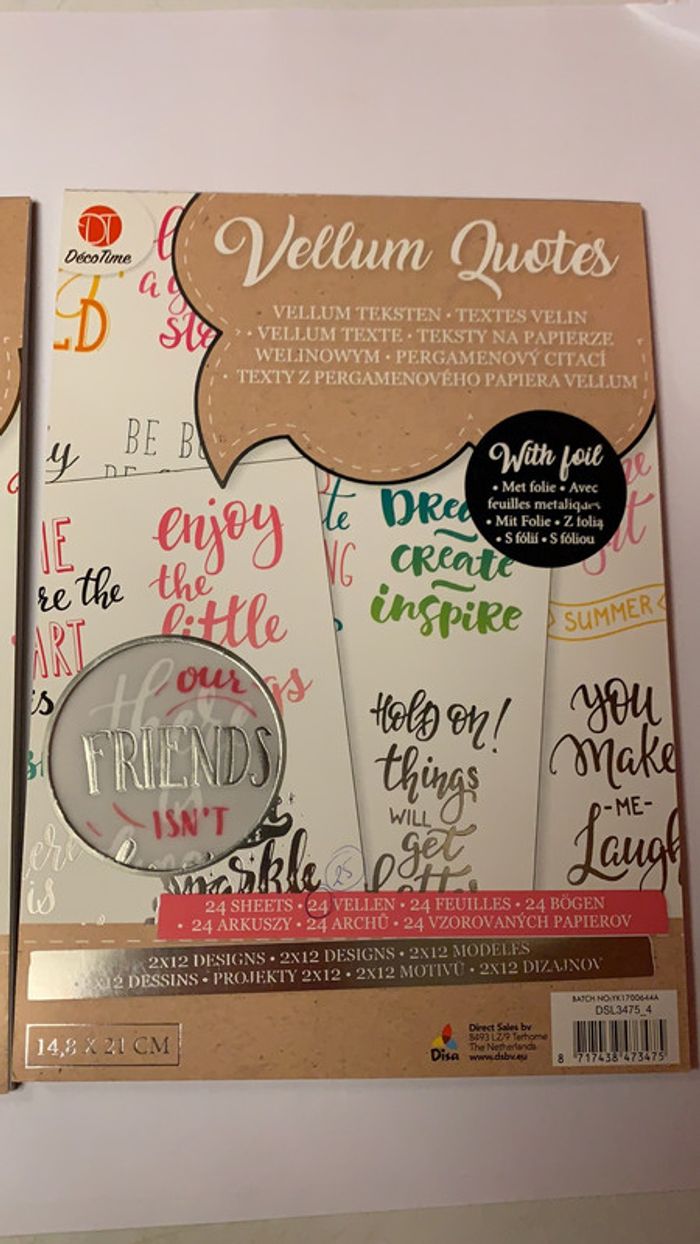 DT
DécoTime
Vellum Quotes
VELLUM TEKSTEN • TEXTES VELIN
• VELLUM TEXTE • TEKSTY NA PAPIERZE
WELINOWYM • PERGAMENOVÝ CITACÍ
• TEXTY Z PERGAMENOVÉHO PAPIERA VELLUM
With foil
• Met folie • Avec
feuilles metaliques
• Mit Folie • Z folią
• S fólií • S fóliou
a
BE
enjoy
the
little
re the
is
our
FRIENDS
ISN'T
sparkle
create
inspire
Hold on!
things
WILL
get
SUMMER
you
Make
-ME-
Laugh
25
24 SHEETS • 24 VELLEN • 24 FEUILLES • 24 BÖGEN
• 24 ARKUSZY • 24 ARCHŮ • 24 VZOROVANÝCH PAPIEROV
2X12 DESIGNS • 2X12 DESIGNS • 2X12 MODELES
2X12 DESSINS • PROJEKTY 2X12 • 2X12 MOTIVŮ • 2X12 DIZAJNOV
14,8 X 21 CM
Disa
Direct Sales bv
8493 LZ/9 Terhorne
The Netherlands
www.dsbv.eu
BATCH NO:YK1700644A
DSL3475_4
8 717438 473475